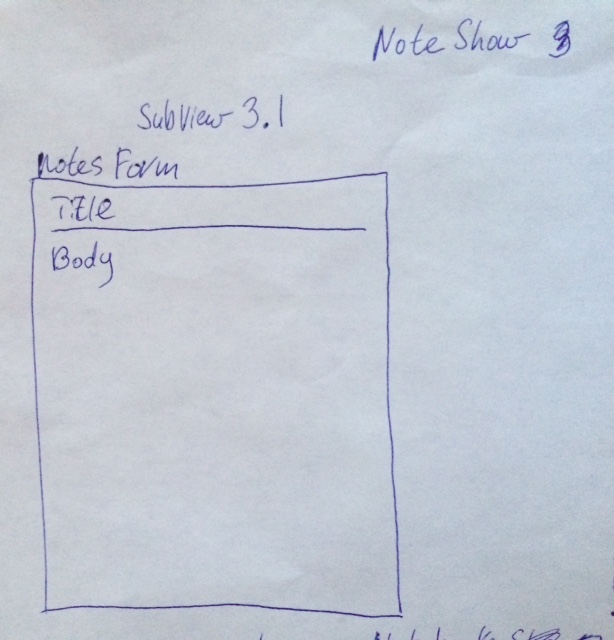 Note Show 3
SubView 3.1
Notes Form
Title
Body